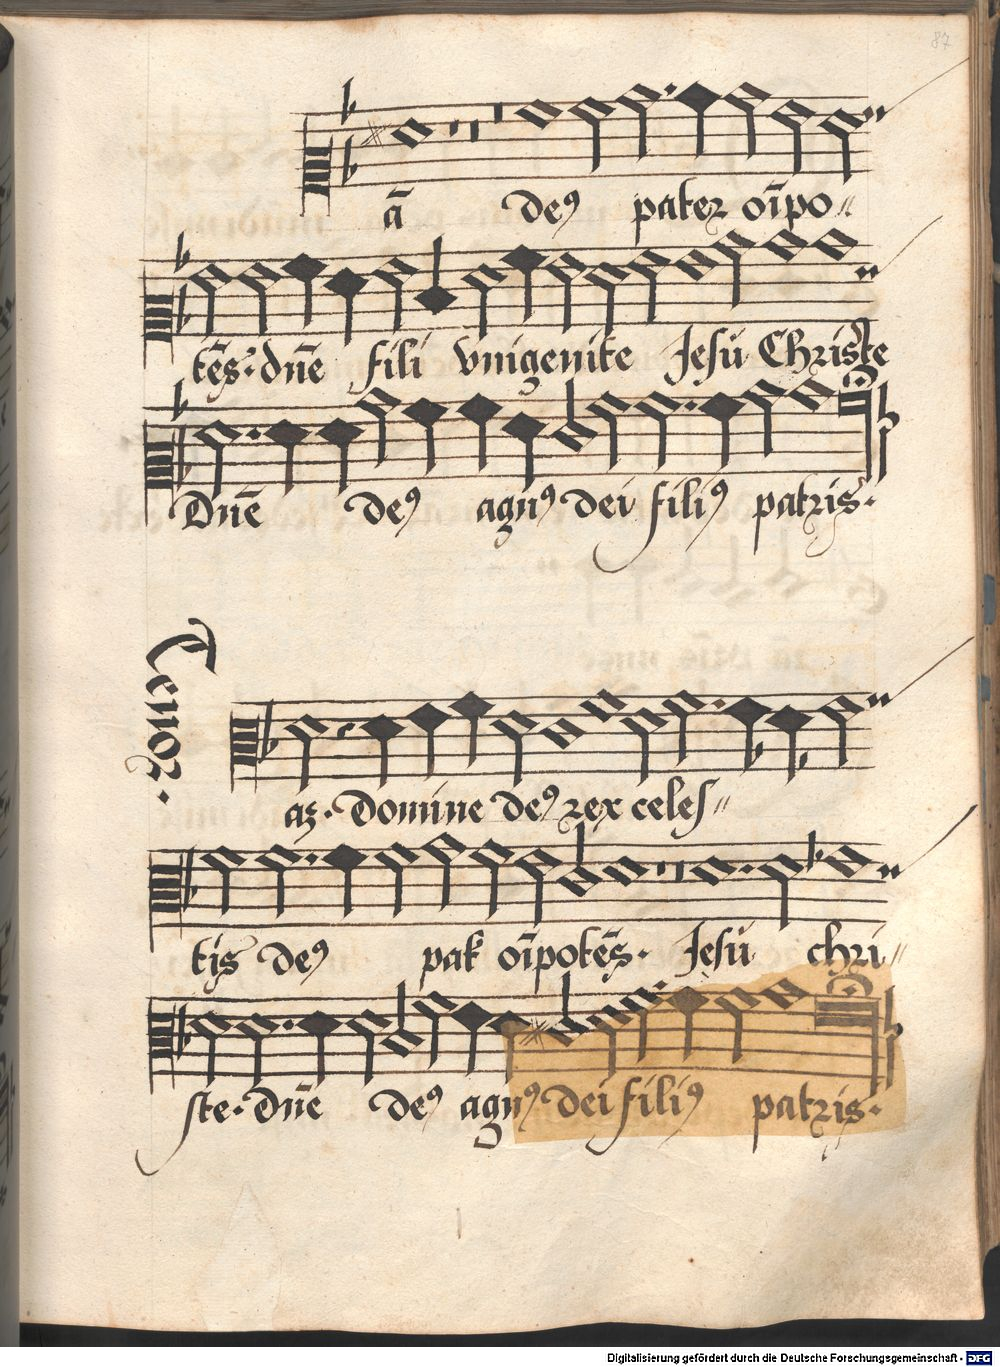 87
ā deꝰ pater oīpo〃
tēs · dn̄e fili vnigenite Jesu Christe
Dn̄e deꝰ agnꝰ dei filiꝰ patris ·
Tenor ·
as · Domine deꝰ rex celes〃
tis deꝰ pat oīpotēs · Jesu chri〃
ste · dn̄e deꝰ agnꝰ dei filiꝰ patris ·
Digitalisierung gefördert durch die Deutsche Forschungsgemeinschaft - DFG